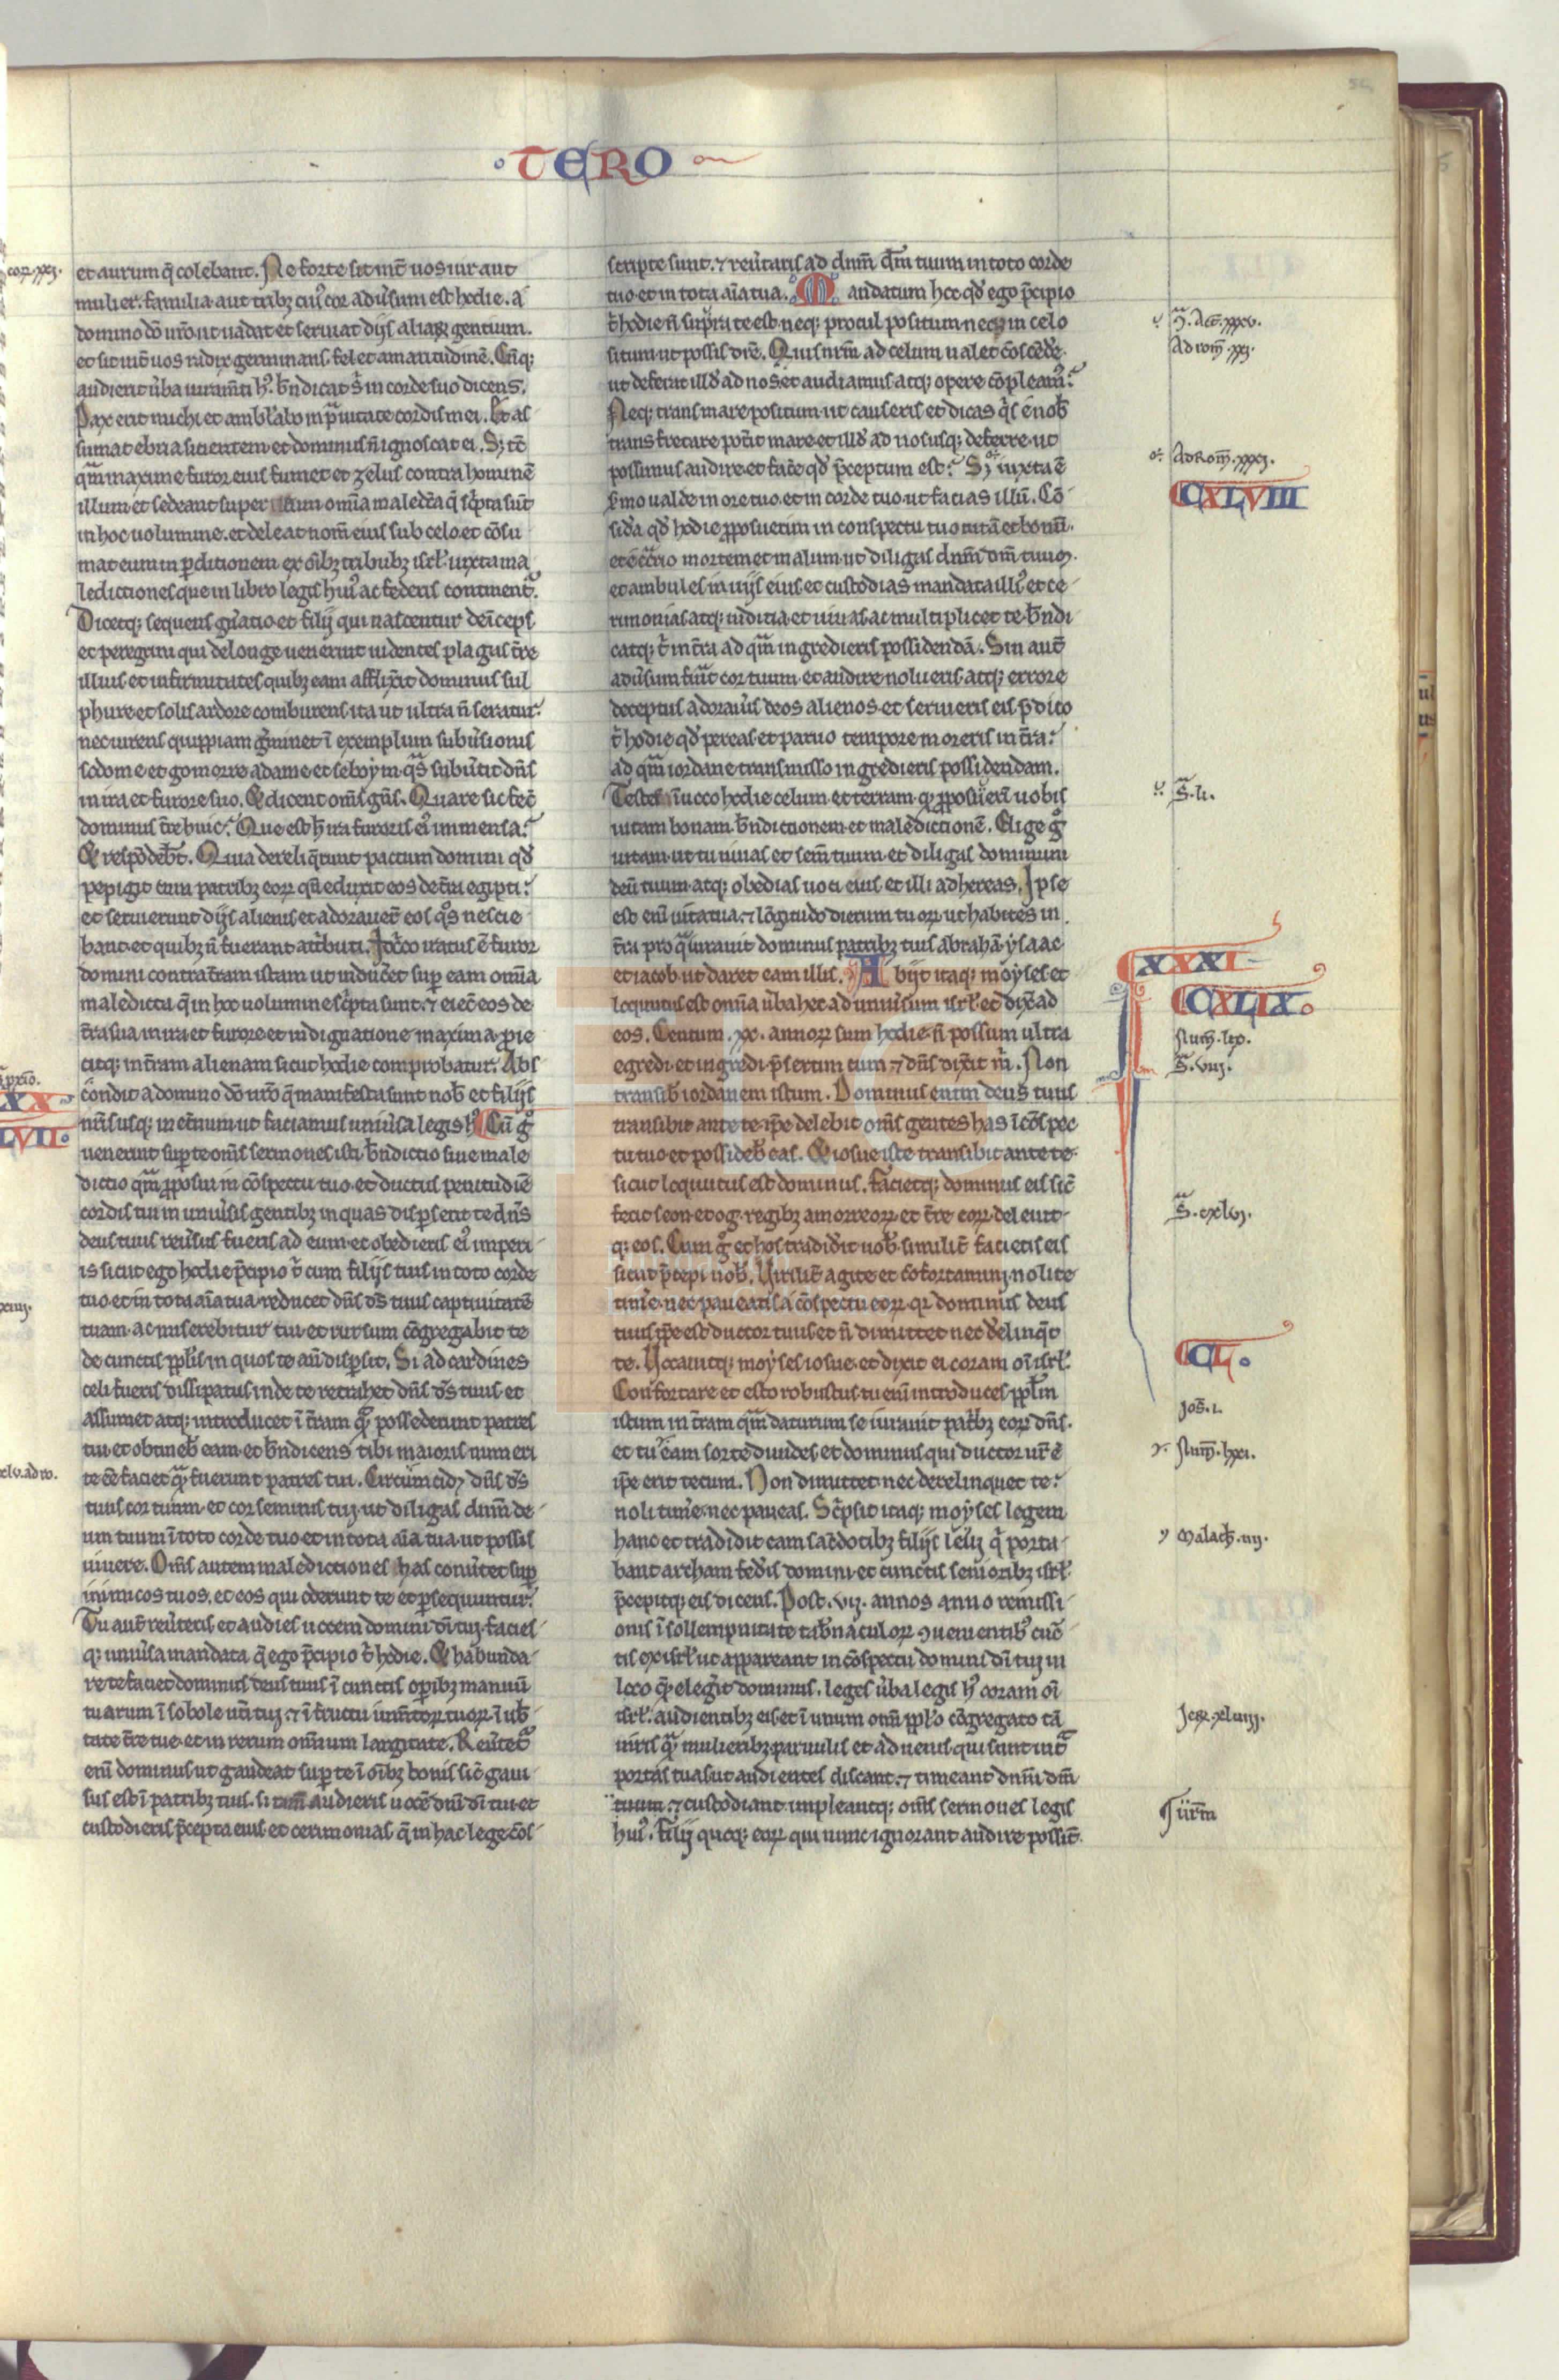 TERO
et aurum q̄ colebant. Ne forte sit int̄ uos uir aut
mulier. familia aut tribꝫ cui᷒ cor aduˀsum est hodie. a
domino dō nr̄o. ut uadat et seruiat dijs aliaꝝ gentium.
et sit int̄ uos radix germinans. fel et amaritudinē. Cūqꝫ
audierit uˀba iuram̄ti h᷒. bn̄dicat sˀ in corde suo dicens.
Pax erit michi et ambl̓abo in pͣuitate cordis mei. Et as
sumat ebria sitientem et dominus n̄ ignoscat ei. Sꝫ tc̄
qͣm maxime furor eius fumet et zelus contra hominē
illum et sedeant super eum om̄ia maledc̄a q̄ scͥpta sūt
in hoc uolumine. et deleat nom̄ eius sub celo. et cōsu
mat eum in ꝑditionem ex oībꝫ tribubꝫ isrl̓. iuxta ma
ledictiones que in libro legis hui᷒ ac federis continentͬ.
Dicetqꝫ sequens gn̄atio et filij qui nascentur deīceps.
et peregrini qui de longe uenerint uidentes plagas tr̄e
illius et infirmitates quibꝫ eam afflix̄it dominus sul
phure et solis ardore comburens ita ut ultra n̄ seratur.
nec uirens quippiam gͨminet ī exemplum subuˀsionis
sodome et gomorre adame et seboym. qͣs subuˀtit dn̄s
in ira et furore suo. Et dicent om̄s gn̄s. Quare sic fec̄
dominus tr̄e huic? Que est h̄ ira furoris ei᷒ immensa?
Et respōdeb̄t. Quia dereliq̄runt pactum domini qd̄
pepigit cum patribꝫ eoꝝ qn̄ eduxit eos de tr̄a egipti:
et seruierunt dijs alienis et adorauer̄t eos qͦs nescie
bant. et quibꝫ n̄ fuerant att̄buti. Idcͦco iratus ē furor
domini contra tr̄am istam ut induc̄et suꝑ eam om̄ia
maledicta q̄ in hoc uolumine scͥpta sunt. ⁊ eiec̄ eos de
tr̄a sua in ira et furore et indignatione maxima. proie
citqꝫ in tr̄am alienam sicut hodie comprobatur. Abs
condita domino dō nr̄o q̄ manifesta sunt nob̄ et filijs
nr̄is usqꝫ in et̄num. ut faciamus uniuˀsa legis h᷒. Cū gͦ
uenerint suꝑ te om̄s sermones isti. bn̄dictio siue male
dictio qͣm ꝓposui in cōspectu tuo. et ductus penitudīe
cordis tui in uniuˀsis gentibꝫ in quas disꝑserit te dn̄s
deus tuus reuˀsus fueris ad eum. et obedieris ei᷒ imperi
is sicut ego hodie p̄cipio tˀ cum filijs tuis in toto corde
tuo et in tota aīa tua. reducet dn̄s ds̄ tuus captiuitatē
tuam. ac miserebitur tui. et rursum cōgregabit te
de cunctis ppl̓is in quos te an̄ disꝑsit. Si ad cardines
celi fueris dissipatus inde te retrahet dn̄s ds̄ tuus. et
assumet atqꝫ introducet ī tr̄am qͣm possederunt patres
tui et obtineb̄ eam. et bn̄dicens tibi maioris numeri
te eē faciet qͣm fuerunt patres tui. Circūcidꝫ dn̄s ds̄
tuus cor tuum. et cor seminis tuj. ut diligas dnm̄ de
um tuum ī toto corde tuo et in tota aīa tua. ut possis
uiuere. Om̄s autem maledictiones has conuˀtet suꝑ
inimicos tuos. et eos qui oderunt te et ꝑsequuntur.
Tu aut̄ reuˀteris et audies uocem domini dī tuj. facies
qꝫ uniuˀsa mandata q̄ ego p̄cipio tˀ hodie. Et habunda
re te faciet dominus deus tuus ī cunctis oꝑibꝫ manuū
tuarum ī sobole utˀi tuj. ⁊ ī fructu ium̄toꝝ tuoꝝ. ī ub̄
tate tr̄e tue. et in rerum om̄ium largitate. Reuˀtetͬ
eni̅ dominus ut gaudeat suꝑ te ī oībꝫ bonis sic̄ gaui
sus est ī patribꝫ tuis. si tam̄ audieris uocē dn̄i dī tui. et
custodieris p̄cepta eius et cerimonias q̄ in hac lege cōs
scripte sunt. ⁊ reuˀtaris ad dnm̄ dm̄ tuum in toto corde
tuo et in tota aīa tua. Mandatum hoc qd̄ ego p̄cipio
tˀ hodie n̄ supra te est. neqꝫ procul positum. neqꝫ in celo
situm. ut possis dic̄e. Quis nr̄m ad celum ualet cōscēde᷒.
ut deferat illd̄ ad nos et audiamus atqꝫ opere cōpleam᷒?
Neqꝫ trans mare positum. ut causeris et dicas qͥs e nob̄
transfretare pot̄it mare. et illd̄ ad nos usqꝫ deferre. ut
possimus audire. et fac̄e qd̄ p̄ceptum est? Sꝫ iuxta ē
sˀmo ualde in ore tuo. et in corde tuo ut facias illū. Cō
sida qd̄ hodie ꝓposuerim in conspectu tuo uitā et bonū.
et e cͣrio mortem et malum. ut diligas dnm̄ dm̄ tuum.
et ambules in uijs eius. et custodias mandata illi᷒ et ce
rimonias atqꝫ iudicia. et uiuas ac multiplicet te. bn̄di
catqꝫ tˀ in tr̄a ad qͣm ingredieris possidendā. Sin aut̄
aduˀsum fuˀit cor tuum. et audire nolueris atqꝫ errore
deceptus adoraūis deos alienos. et seruieris eis. p̄dico
tˀ hodie qd̄ pereas. et paruo tempore moreris in tr̄a:
ad qͣm iordane transmisso ingredieris possidendam.
Testes inuoco hodie celum. et terram. qꝫ ꝓposuerī uobis
uitam bonam. bn̄dictionem et maledictionē. Elige gͦ
uitam. ut tu uiuas et sem̄ tuum. et diligas dominum
deū tuum. atqꝫ obedias uoci eius et illi adhereas. Ipse
est eni̅ uita tua. ⁊ lōgitudo dierum tuoꝝ. ut habites in
tr̄a pro qͣ iurauit dominus patribꝫ tuis abrahā. ysaac
et iacob. ut daret eam illis. Abijt itaqꝫ moyses et
locutus est om̄ia uˀba hec ad uniuˀsum isrl̓. et dix̄ ad
eos. Centum. xx. annoꝝ sum hodie. n̄ possum ultra
egredi. et ingredi. p̄sertim cum ⁊ dn̄s dix̄it mˀ. Non
transib̄ iordanem istum. Dominus enim deus tuus
transibit ante te. ip̄e delebit om̄s gentes has ī cōspec
tu tuo et possideb̄ eas. Et iosue iste transibit ante te.
sicut locutus est dominus. Facietqꝫ dominus eis sic̄
fecit seon. et og. regibꝫ amorreoꝝ et tr̄e eoꝝ. delebit
qꝫ eos. Cum gͦ et hos tradidˀit uob̄. similit̄ facietis eis
sicut p̄cepi uob̄. Uirilit̄ agite et cōfortamini. nolite
tim̄e. nec paueatis a cōspectu eoꝝ. qꝛ dominus deus
tuus ip̄e est ductor tuus et n̄ dimittet nec dˀelinq̄t
te. Uocauitqꝫ moyses iosue. et dixit ei coram oī isrl̓.
Confortare et esto robustus. tu eni̅ introduces ppl̓m
istum in tr̄am qͣm daturum se iurauit patˀbꝫ eoꝝ dn̄s.
et tu eam sorte diuides. et dominus qui ductor ur̄ ē
ip̄e erit tecum. Non dimittet nec derelinquet te:
noli tim̄e. nec paueas. Scͥpsit itaqꝫ moyses legem
hanc et tradidit eam sac̄dotibꝫ filijs leui. qͥ porta
bant archam fedˀis domini. et cunctis senioribꝫ isrl̓.
p̄cepitqꝫ eis dicens. Post. vij. annos anno remissi
onis ī sollempnitate tabn̄aculoꝝ ꝯuenientibꝫ cūc
tis ex isrl̓. ut appareant in cōspectu domini dī tuj in
loco quē elegˀit dominus. leges uˀba legis h᷒ coram oī
isrl̓. audientibꝫ eis. et ī unum om̄i ppl̓o cōgregato tā
uiris qͣm mulieribꝫ. paruulis et aduenis. qui sunt intͣ
portas tuas. ut audientes discant. ⁊ timeant dnm̄ dm̄
tuum. ⁊ custodiant. impleantqꝫ om̄s sermones legis
hui᷒. Filij quoqꝫ eoꝝ qui nunc ignorant audire possīt.
Ad rom̄. xxj.
Ad Rom̄. xxxj.
CXLVIII
Sͣ. li.
XXXI
CXLIX.
Num̄. lxx.
Sͣ. viij.
Sͣ. cxlvj.
CL.
Jos̄. i.
Num̄. lxxi.
Malach. iiij.
Jer̄. xliiij.
ur̄m